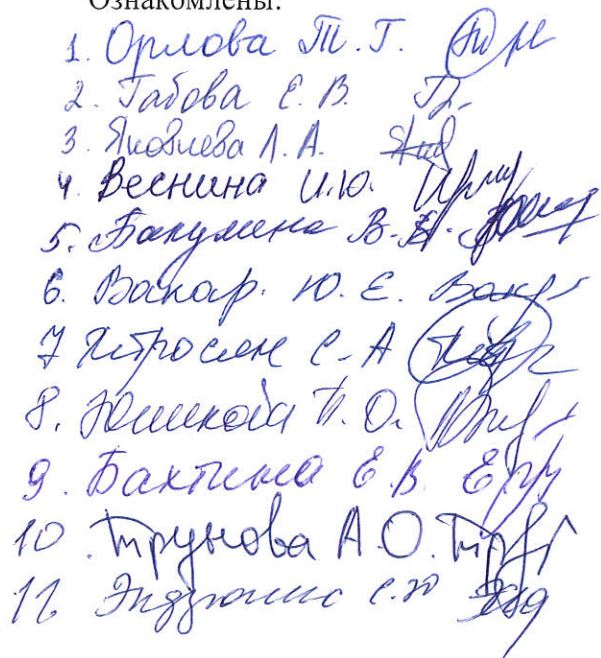 Ознакомлены:
1. Орлова Т. Г.
2. Габова Е. В.
3. Яковлева Л. А.
4. Веснина И.Ю.
5. Бакулина В.
6. Вакар. Ю. Е.
7 Петросян С-А
8. Юшкова Т. О.
9. Бахтина Е. В.
10. Трунова А.О.
11 С.Ю